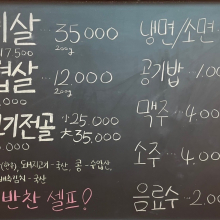 살 35,000
17,500 200g
살 ... 12,000
,000 200g
전골 小25,000
,000 大35,000
돼지고기-국산, 콩-수입산
국산
반찬 셀프!
냉면/소면
공기밥 ... 1,00
맥주 ... 4,00
소주 ... 4,00
음료수 ... 2,00